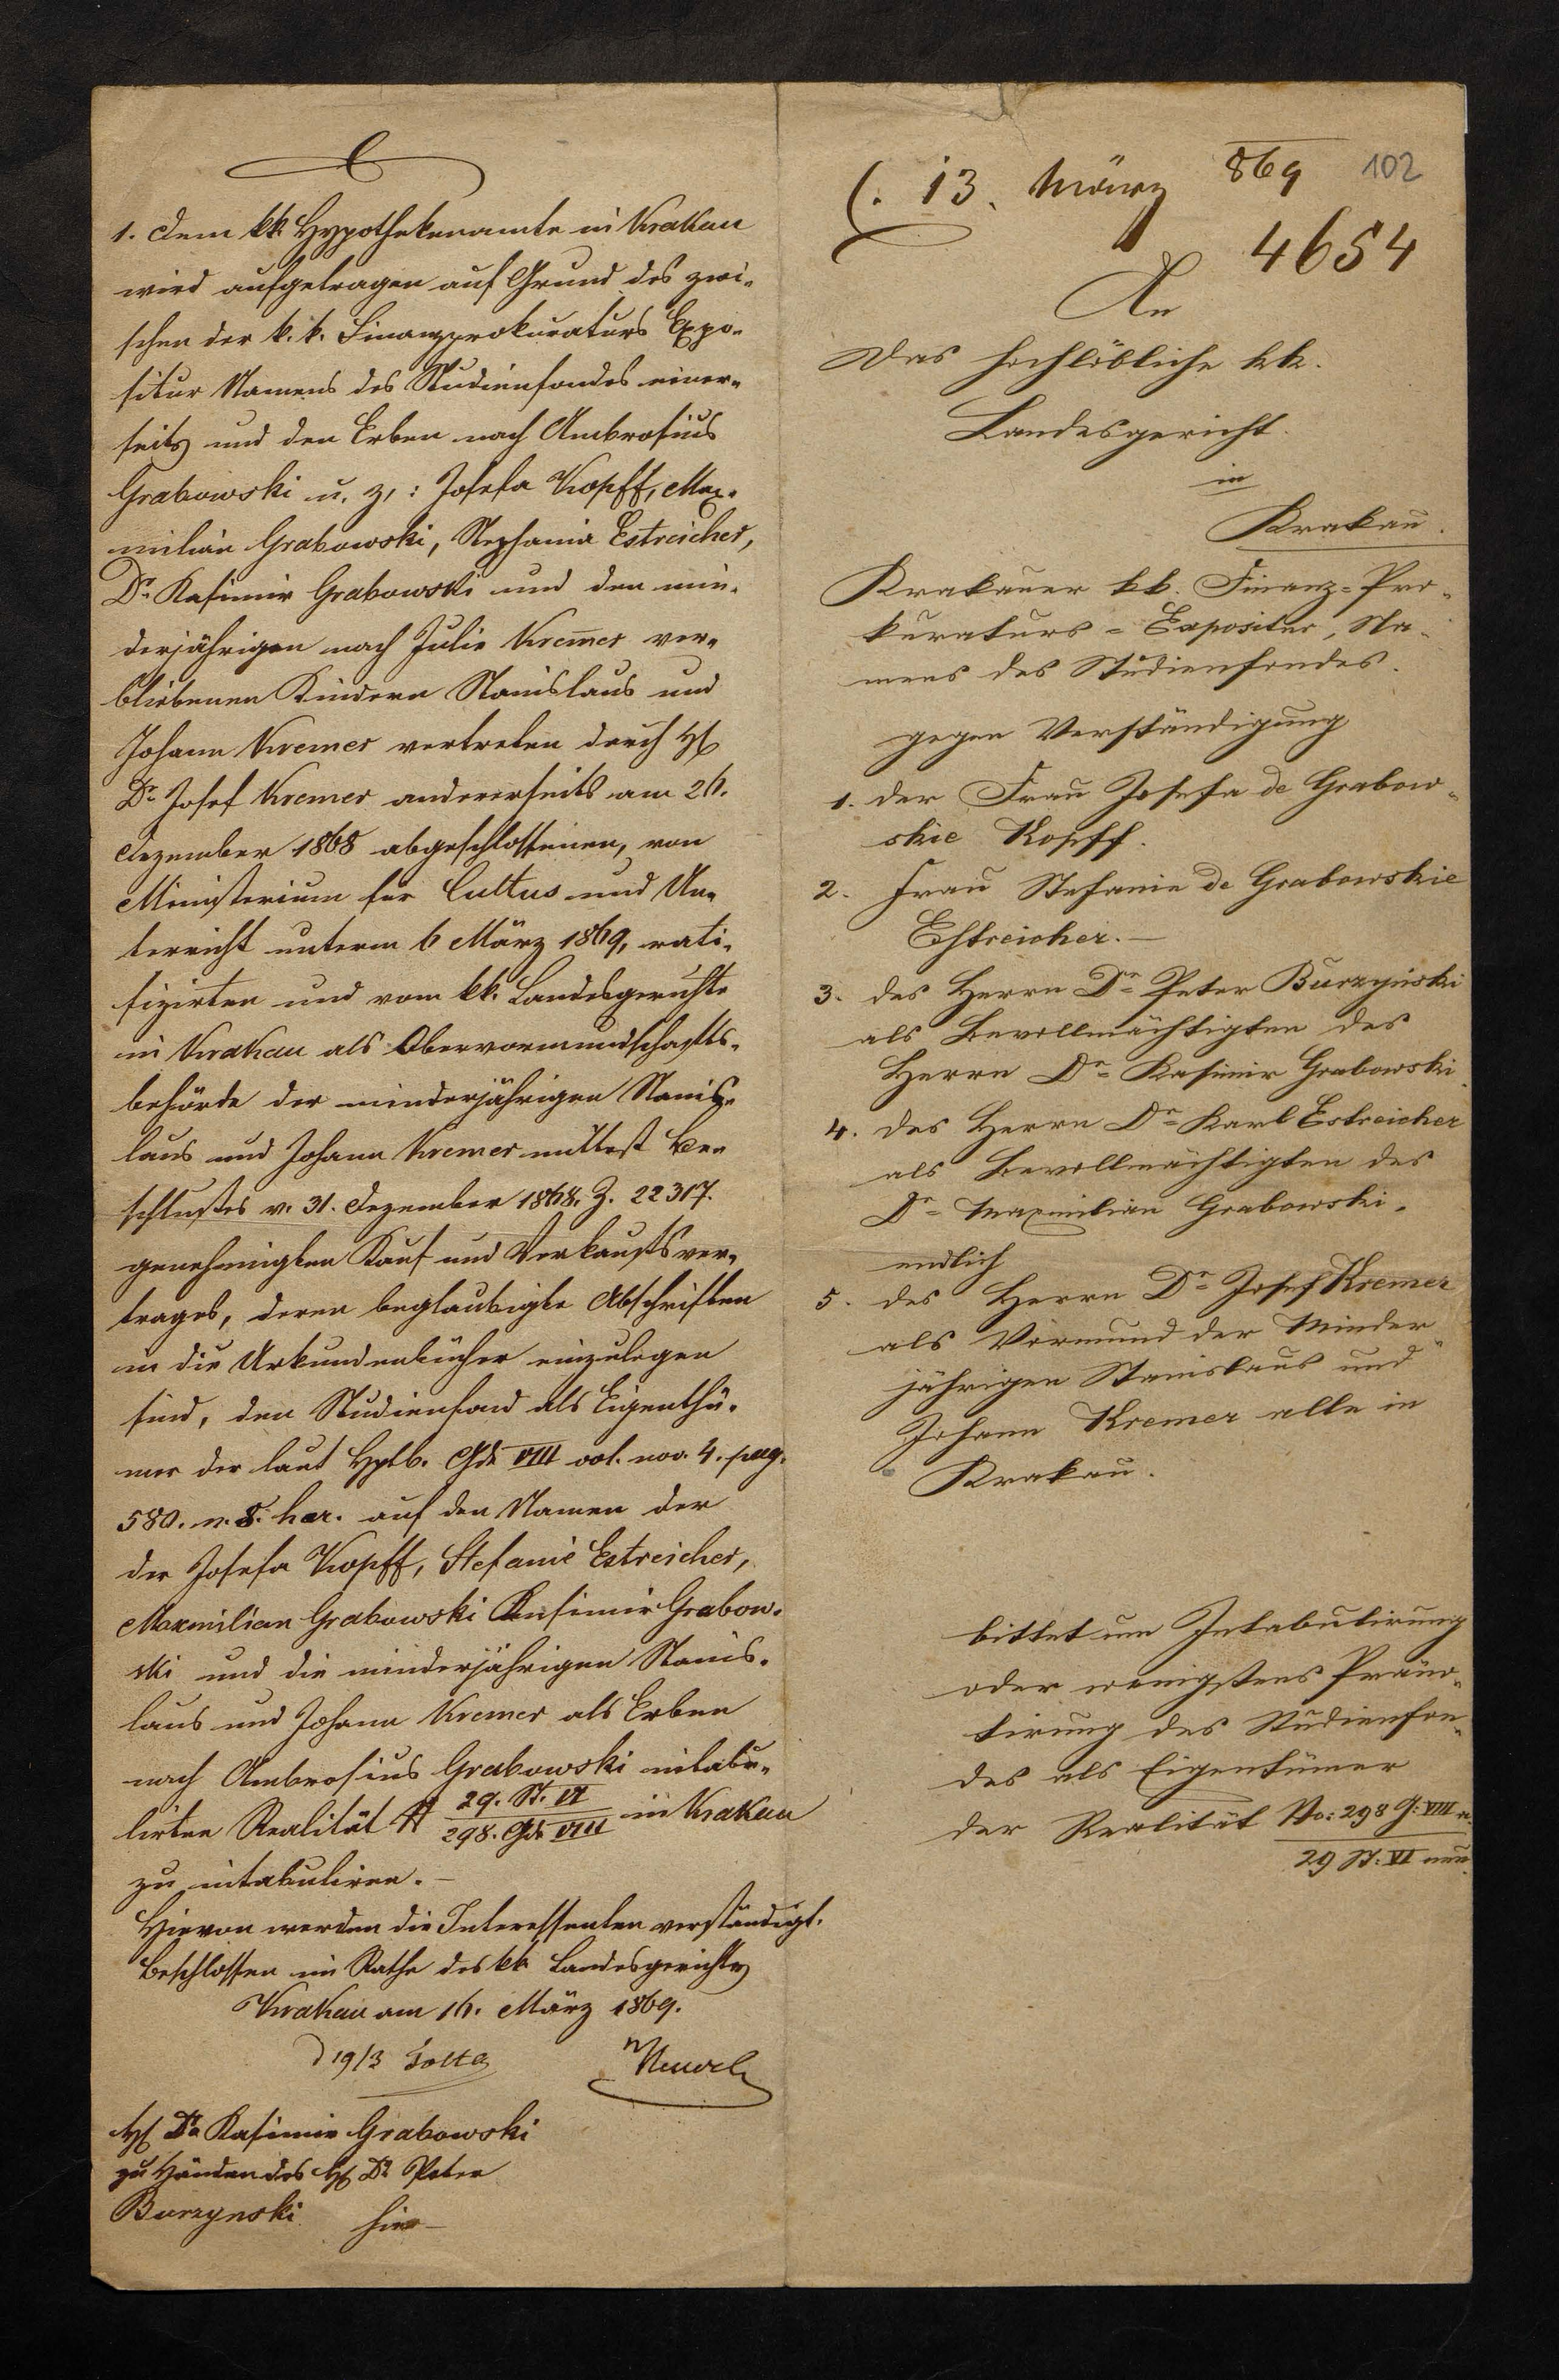 1. Dem kk. Hypothekenamte in Krakau
wird aufgetragen auf Grund des zwi-
schen der k. k. Finanzprokuraturs Expo-
situr Namens des Studienfondes einer-
seits und den Erben nach Ambrosius
Grabowski u. z.: Josefa Kopff, Max-
milian Grabowski, Stephania Estreicher,
Dr. Kasimir Grabowski und den min-
derjährigen nach Julie Kremer ver-
bliebenen Kindern Stanislaus und
Johann Kremer vertreten durch H
Dr. Josef Kremer andererseits am 26.
Dezember 1868 abgeschlossenen, von
Ministerium für Cultus und Un-
terricht unterm 6 März 1869, rati-
fizirten und vom kk. Landesgerichte
in Krakau als Obervormundschafts-
behörde der minderjährigen Stanis-
laus und Johann Kremer mittest Be-
schlußes v. 31. Dezember 1868. Z. 22317.
genehmigten Kauf und Verkaufsver-
trages, deren beglaubigte Abschriften
in die Urkundenbücher einzulegen
sind, den Studienfond als Eigenthü-
mer der laut Hptb. Gde VIII vol. nov. 4. pag.
580. n. 8. hær. auf den Namen der
der Josefa Kopff, Stefanie Estreicher,
Maxmilian Grabowski Kasimir Grabow-
ski und die minderjährigen Stanis-
laus und Johann Kremer als Erben
nach Ambrosius Grabowski intabu-
lirten Realität N 29. St. VI / 298. Gde VIII in Krakau
zu intabuliren.-
Hievon werden die Interessenten verständigt.
Beschlossen im Rathe des kk. Landesgerichts
Krakau am 16. März 1869.
19/3
H Dr. Kasimir Grabowski
zu Händen des H Dr. Peter
Burzynski hier-
13. März 869 102
4654
An
Das hochlöbliche kk.
Landesgericht.
in
Krakau.
Krakauer kk. Finanz-Pro-
kuraturs-Expositur, Na-
mens des Studienfondes.
gegen Verständigung
1. der Frau Josefa de Grabow-
skie Kopff.
2. Frau Stefanie de Grabowskie
Estreicher.-
3. des Herrn Dr. Peter Burzyński
als Bevollmächtigten des
Herrn Dr. Kasimir Grabowski.
4. des Herrn Dr. Karl Estreicher
als Bevollmächtigten des
Dr. Maxmilian Grabowski.
endlich
5. des Herrn Dr. Josef Kremer
als Vormund der Minder-
jährigen Stanislaus und
Johann Kremer alle in
Krakau.
bittet um Intabulirung
oder wenigstens Präno-
tirung des Studienfon-
des als Eigentümer
der Realität No: 298 G: VIII
29 St: VI